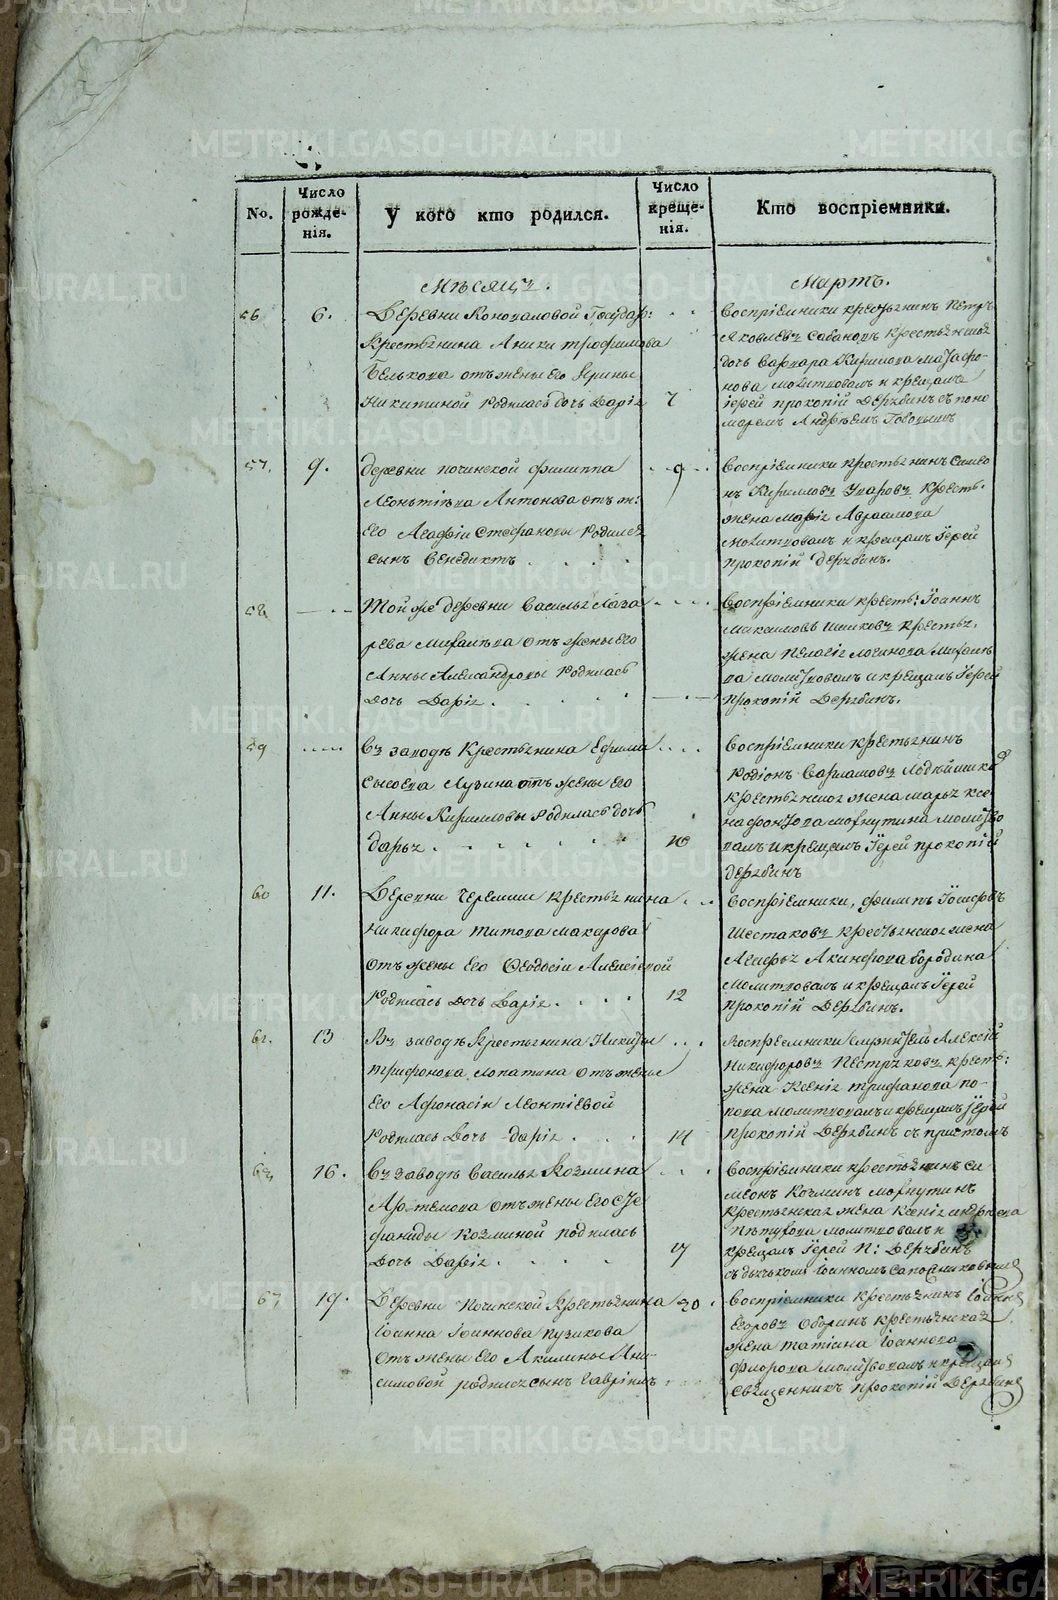 No.
Число рожде-нія.
У кого кто родился.
Число креще-нія.
Кто воспріемники.
Мѣсяцъ.
Мартъ.
56
6.
Деревни Коноваловой Государ:
Крестьянина Аники трофимова
Белькова отъ жены его Ирины
Никитиной родилась дочь Дарія
7
Воспріемники крестьянинъ петръ
Яковлевъ Сабановъ крестьянская
дочь Варвара Кирилова
молитвовалъ и крещалъ
іерей прокопій Дерябинъ съ поно
маремъ Андрѣемъ
57.
9.
деревни починской филиппа
Леонтіева Антонова отъ ж:
его Агафіи Стефановы родился
сынъ Венедиктъ
9
Воспріемники крестьянинъ Симео
нъ Кириловъ Уваровъ Кресть.
жена Марія Авраамова
Молитвовалъ и крещалъ Іерей
прокопій Дерябинъ.
58
Той же деревни Василья Лаза
рева Михалева отъ жены его
Анны Александровы родилась
дочь Дарія
Воспріемники крестья: Іоаннъ
Максимовъ Шешковъ крестья.
жена Пелагія логинова Михалѣ
ва молитвовалъ и крещалъ Іерей
Прокопій Дерябинъ.
59
Въ заводѣ Крестьянина Ефима
Сысоева Лузина отъ жены его
Анны Кириловы родилась дочь
дарья
10
Воспріемники крестьянинъ
Родіонъ Варламовъ
крестьянская жена марья ксе
нафонтова моркутина молитво
валъ и крещалъ Іерей прокопій
дерябинъ
60
11.
Деревни Черемши крестьянина
Никифора Титова Макарова
отъ жены его Феодосіи Алексіевой
родилась дочь Дарія
12
Воспріемники, филипъ Іосифовъ
Шестаковъ крестьянская жена
Агафья Акинфова бородина
Молитвовалъ и крещалъ Іерей
прокопій Дерябинъ.
61.
13
Въ заводѣ Крестьянина Никиты
трифонова Лопатина отъ жены
его Афонасіи Леонтіевой
родилась Дочь дарія
14
Воспріемники служитель Алексѣй
Никифоровъ Пестряковъ кресть:
жена Ксенія трифанова по-
пова молитвовалъ и крещалъ іерей
Прокопій Дерябинъ съ причтомъ
62
16.
Въ заводѣ Василья Козмина
Артемова отъ жены его Сте
фаниды Козминой родилась
Дочь Дарія
17
Воспріемники крестьянинъ си
меонъ Козминъ Моркутинъ
Крестьянская жена Ксенія андрѣева
пѣтухова молитвовалъ и
крещалъ Іерей П: Дерябинъ
съ дьячкомъ Іоанномъ Сапожниковымъ
63
19.
Деревни Починской Крестьянина
Іоанна Іоаннова пузикова
отъ жены его Акилины Ани-
симовой родился сынъ Гавріилъ
20
Воспріемники крестьянинъ Іоаннъ
Егоровъ Оборинъ крестьянская
жена татіана Іоаннова
Фирова молитвовалъ и крещалъ
священникъ прокопій Дерябинъ
METRIKI.GASO-URAL.RU